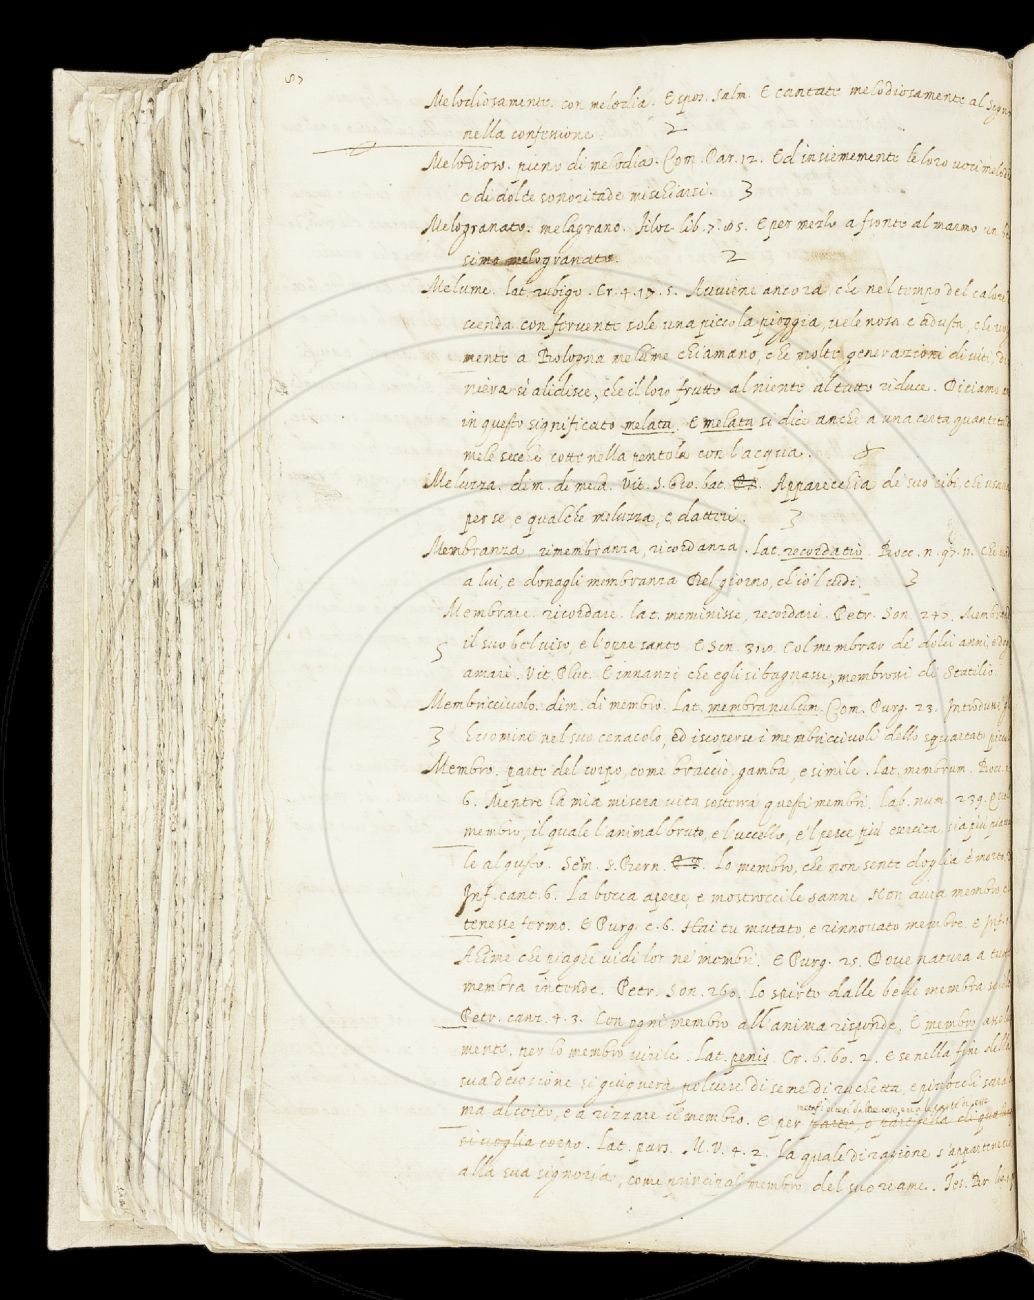 Melodiosamente. con melodia. Espos. Salm. E cantate melodiosamente al Sign
nella confessione. 2
Melodioso. pieno di melodia. Com. Par. 12. Ed insiememente le loro voci melod
e di dolce sonoritade mischiarsi. 3
Melogranato. melagrano. Filoc. lib. 7. E per merlo a fronte al marmo un
simo melogranato. 2
Melume. lat. rubigo. Cr. 4. 17. 5. Avviene ancora che nel tempo del calore
cenda con fervente sole una piccola pioggia, velenosa e adusta, che
mente a Bologna melume chiamano, che molte generazioni di viti,
niera sì alidisce, che il loro frutto al niente al tutto riduce. Diciamo
in questo significato melata. E melata si dice anche a una certa quantità
mele secche cotte nella pentola con l'acqua. &
Meluzza. dim. di mela. Vit. S. Gio. bat. Apparecchia de' suo' cibi, che usava
per se, e qualche meluzza, e datteri. 3
Membranza. rimembranza, ricordanza. Lat. recordatio. Bocc. n. 97. 11. che
a lui, e donagli membranza Del giorno, ch'io 'l vidi. 3
Membrare. ricordare. lat. meminisse, recordari. Petr. Son. 247. Membran
5 il suo bel viso, e l'opre sante. E Son. Col membrar de' dolci anni, e de
amari. Vit. Plut. E innanzi che egli si bagnasse, membrossi di Statilio
Membricciuolo. dim. di membro. Lat. membranulum. Com. Purg. 23. Introdusse
3 uomini nel suo cenacolo, ed iscoperse i membricciuoli dello squartato
Membro. parte del corpo, come braccio, gamba, e simile. Lat. membrum. Bocc.
6. Mentre la mia misera vita sosterrà questi membri. Lab. num. 239.
membro, il quale l'animal bruto, e l'uccello, e 'l pesce più exercita, sia più
le al gusto. Serm. S. Bern. Lo membro, che non sente doglia è morto,
Inf. cant. 6. La bocca aperse, e mostrocci le sanne Non avea membro,
tenesse fermo. E Purg. c. 6. Hai tu mutato, e rinnovato membre. E Inf.
Ahimè che piaghe vidi lor ne' membri. E Purg. 25. Dove natura a tutte
membra intende. Petr. Son. 260. Lo spirto dalle belle membra
Petr. canz. 4. 3. Con ogni membro all'anima risponde, E membro
mente, per lo membro virile. Lat. penis. Cr. 6. 60. 2. e se nella fine della
sua decozione si giugnerà polvere di seme di ruchetta, e
ma al coito, e a rizzare il membro. E per parte, o particella di
si voglia corpo. Lat. pars. M. V. 4. 2. La quale di ragione s'appartenea
alla sua signoria, come principal membro del suo reame. Tes. Br. lib.